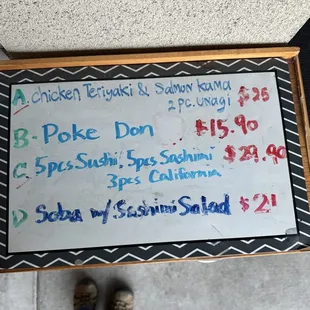 A. chicken Teriyaki & Salmon Kama
2 PC. Unagi $25
B- Poke Don $15.90
C. 5pcs Sushi, 5pcs Sashimi $29.90
3pcs California
D Soba w/ Sashimi Salad $21